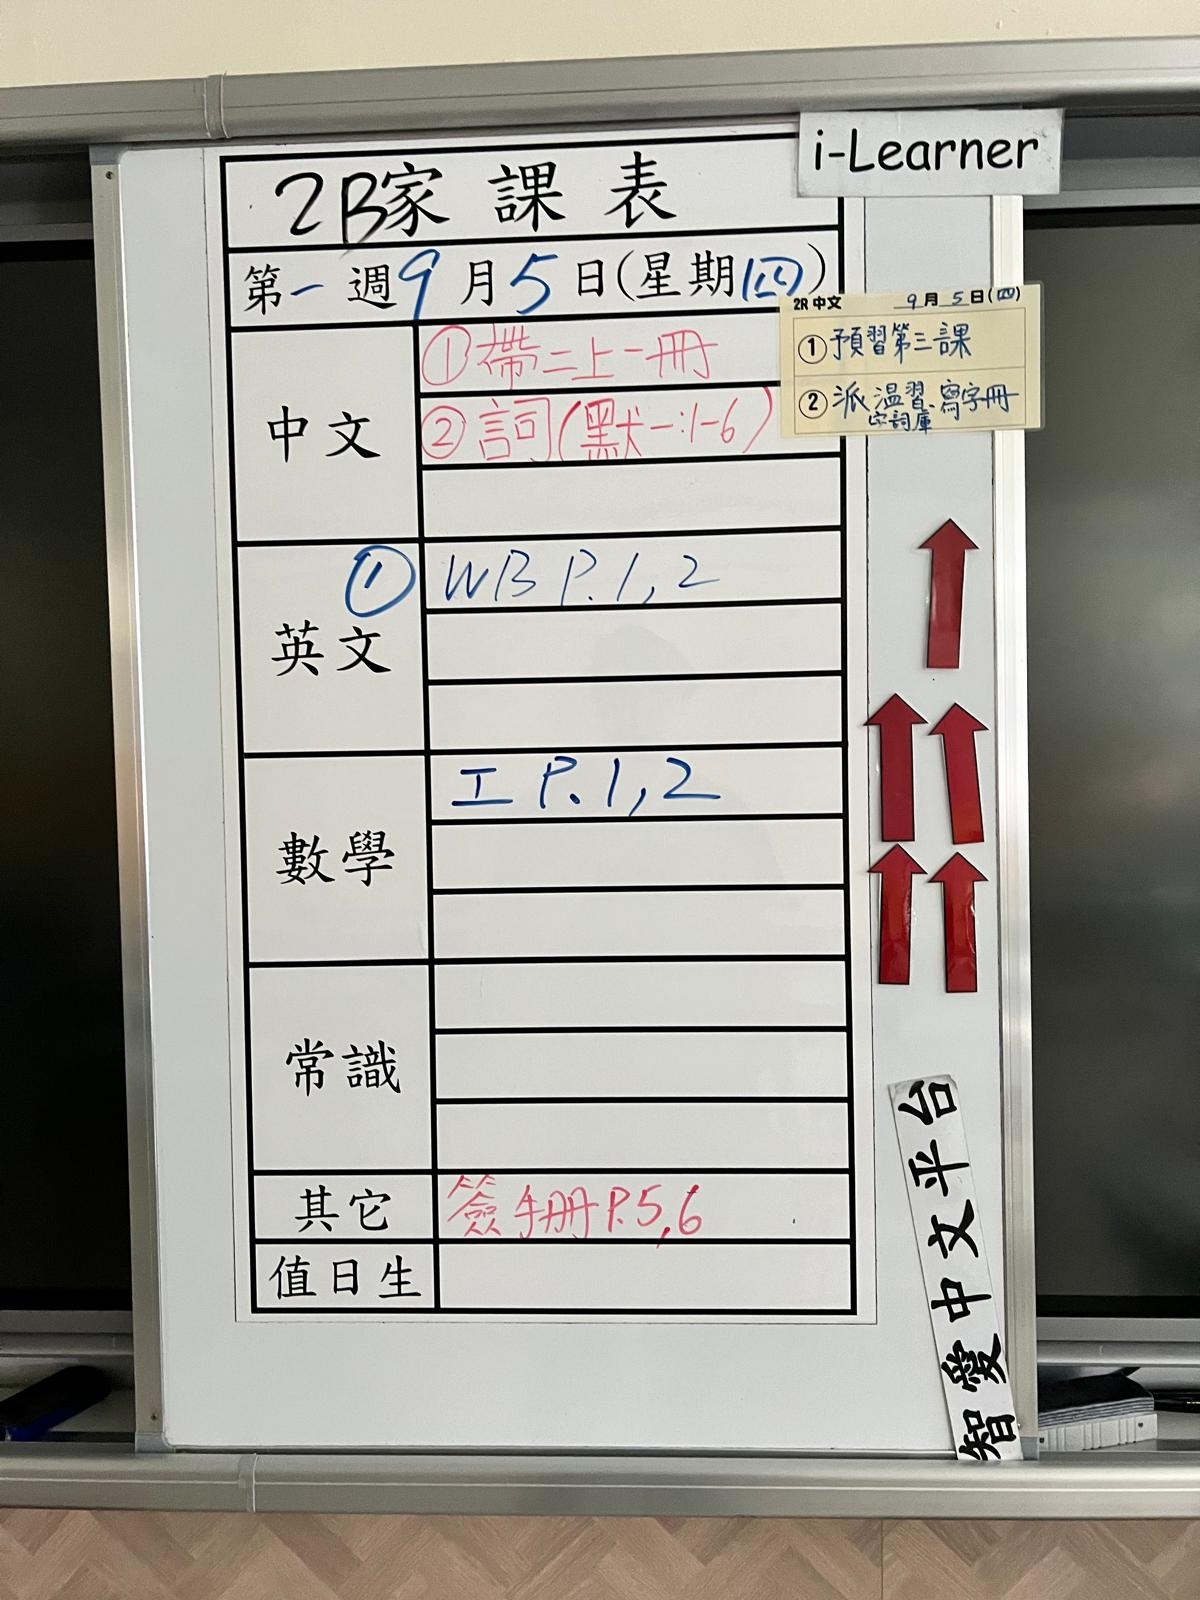 i-Learner
2B家課表
第一週9月5日(星期四)
2R 中文 9月5日(四)
① 預習第三課
② 派溫習、寫字冊
字詞庫
中文
① 帶二上一冊
② 詞(默一:1-6)
英文
① WB P.1,2
數學
工 P.1,2
常識
其它
簽手冊P.5,6
值日生
智愛中文平台